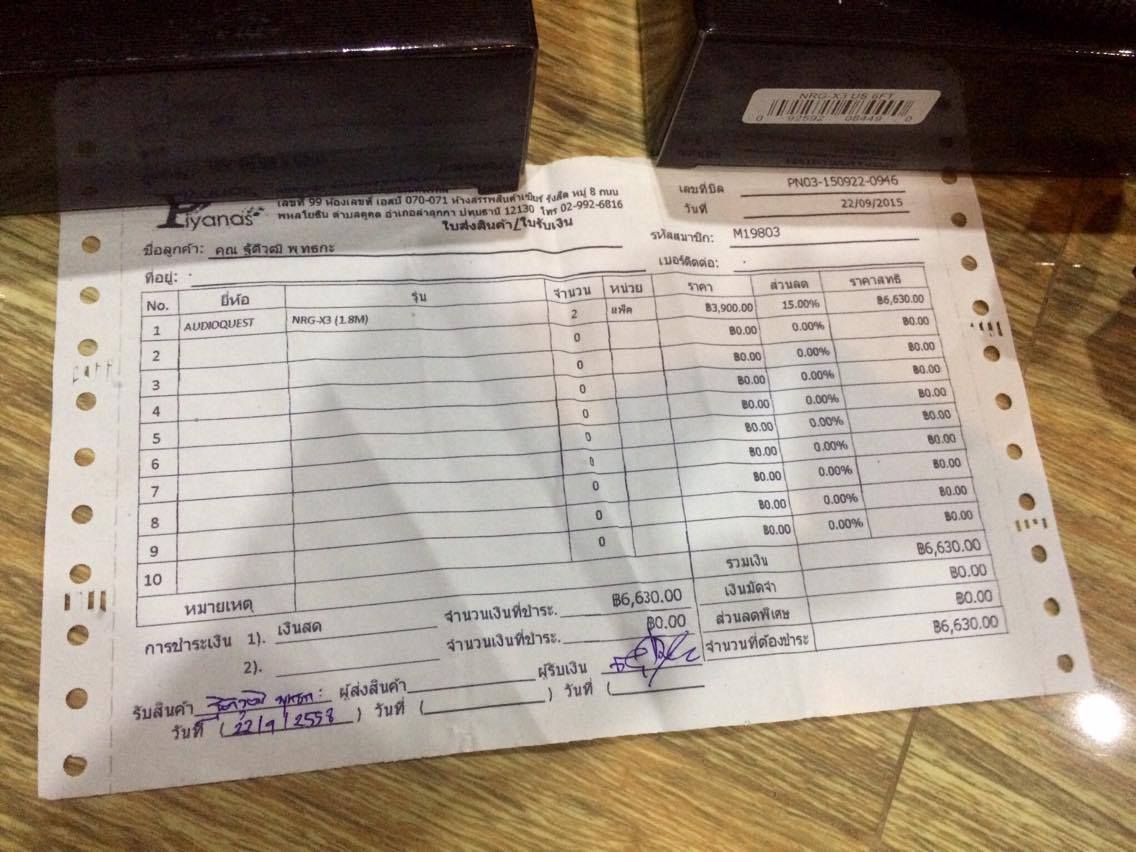 NRG-X3 US 6FT
0 92592 08449 0
Piyanas
เลขที่ 99 ห้องเลขที่ เอสบี 070-071 ห้างสรรพสินค้าเซียร์ รังสิต หมู่ 8 ถนน
พหลโยธิน ตำบลคูคต อำเภอลำลูกกา ปทุมธานี 12130 โทร 02-992-6816
ใบส่งสินค้า/ใบรับเงิน
เลขที่บิล PN03-150922-0946
วันที่ 22/09/2015
ชื่อลูกค้า: คุณ ฐิติวุฒิ พุทธกะ รหัสสมาชิก: M19803
ที่อยู่: . เบอร์ติดต่อ: .
No. ยี่ห้อ รุ่น จำนวน หน่วย ราคา ส่วนลด ราคาสุทธิ
1 AUDIOQUEST NRG-X3 (1.8M) 2 แพ็ค ฿3,900.00 15.00% ฿6,630.00
2 0 ฿0.00 0.00% ฿0.00
3 0 ฿0.00 0.00% ฿0.00
4 0 ฿0.00 0.00% ฿0.00
5 0 ฿0.00 0.00% ฿0.00
6 0 ฿0.00 0.00% ฿0.00
7 0 ฿0.00 0.00% ฿0.00
8 0 ฿0.00 0.00% ฿0.00
9 0 ฿0.00 0.00% ฿0.00
10 0 ฿0.00 0.00% ฿0.00
หมายเหตุ รวมเงิน ฿6,630.00
การชำระเงิน 1). เงินสด จำนวนเงินที่ชำระ. ฿6,630.00 เงินมัดจำ ฿0.00
2). จำนวนเงินที่ชำระ. ฿0.00 ส่วนลดพิเศษ ฿0.00
จำนวนที่ต้องชำระ ฿6,630.00
รับสินค้า ฐิติวุฒิ พุทธกะ ผู้ส่งสินค้า ผู้รับเงิน
วันที่ ( 22/9/2558 ) วันที่ ( ) วันที่ (